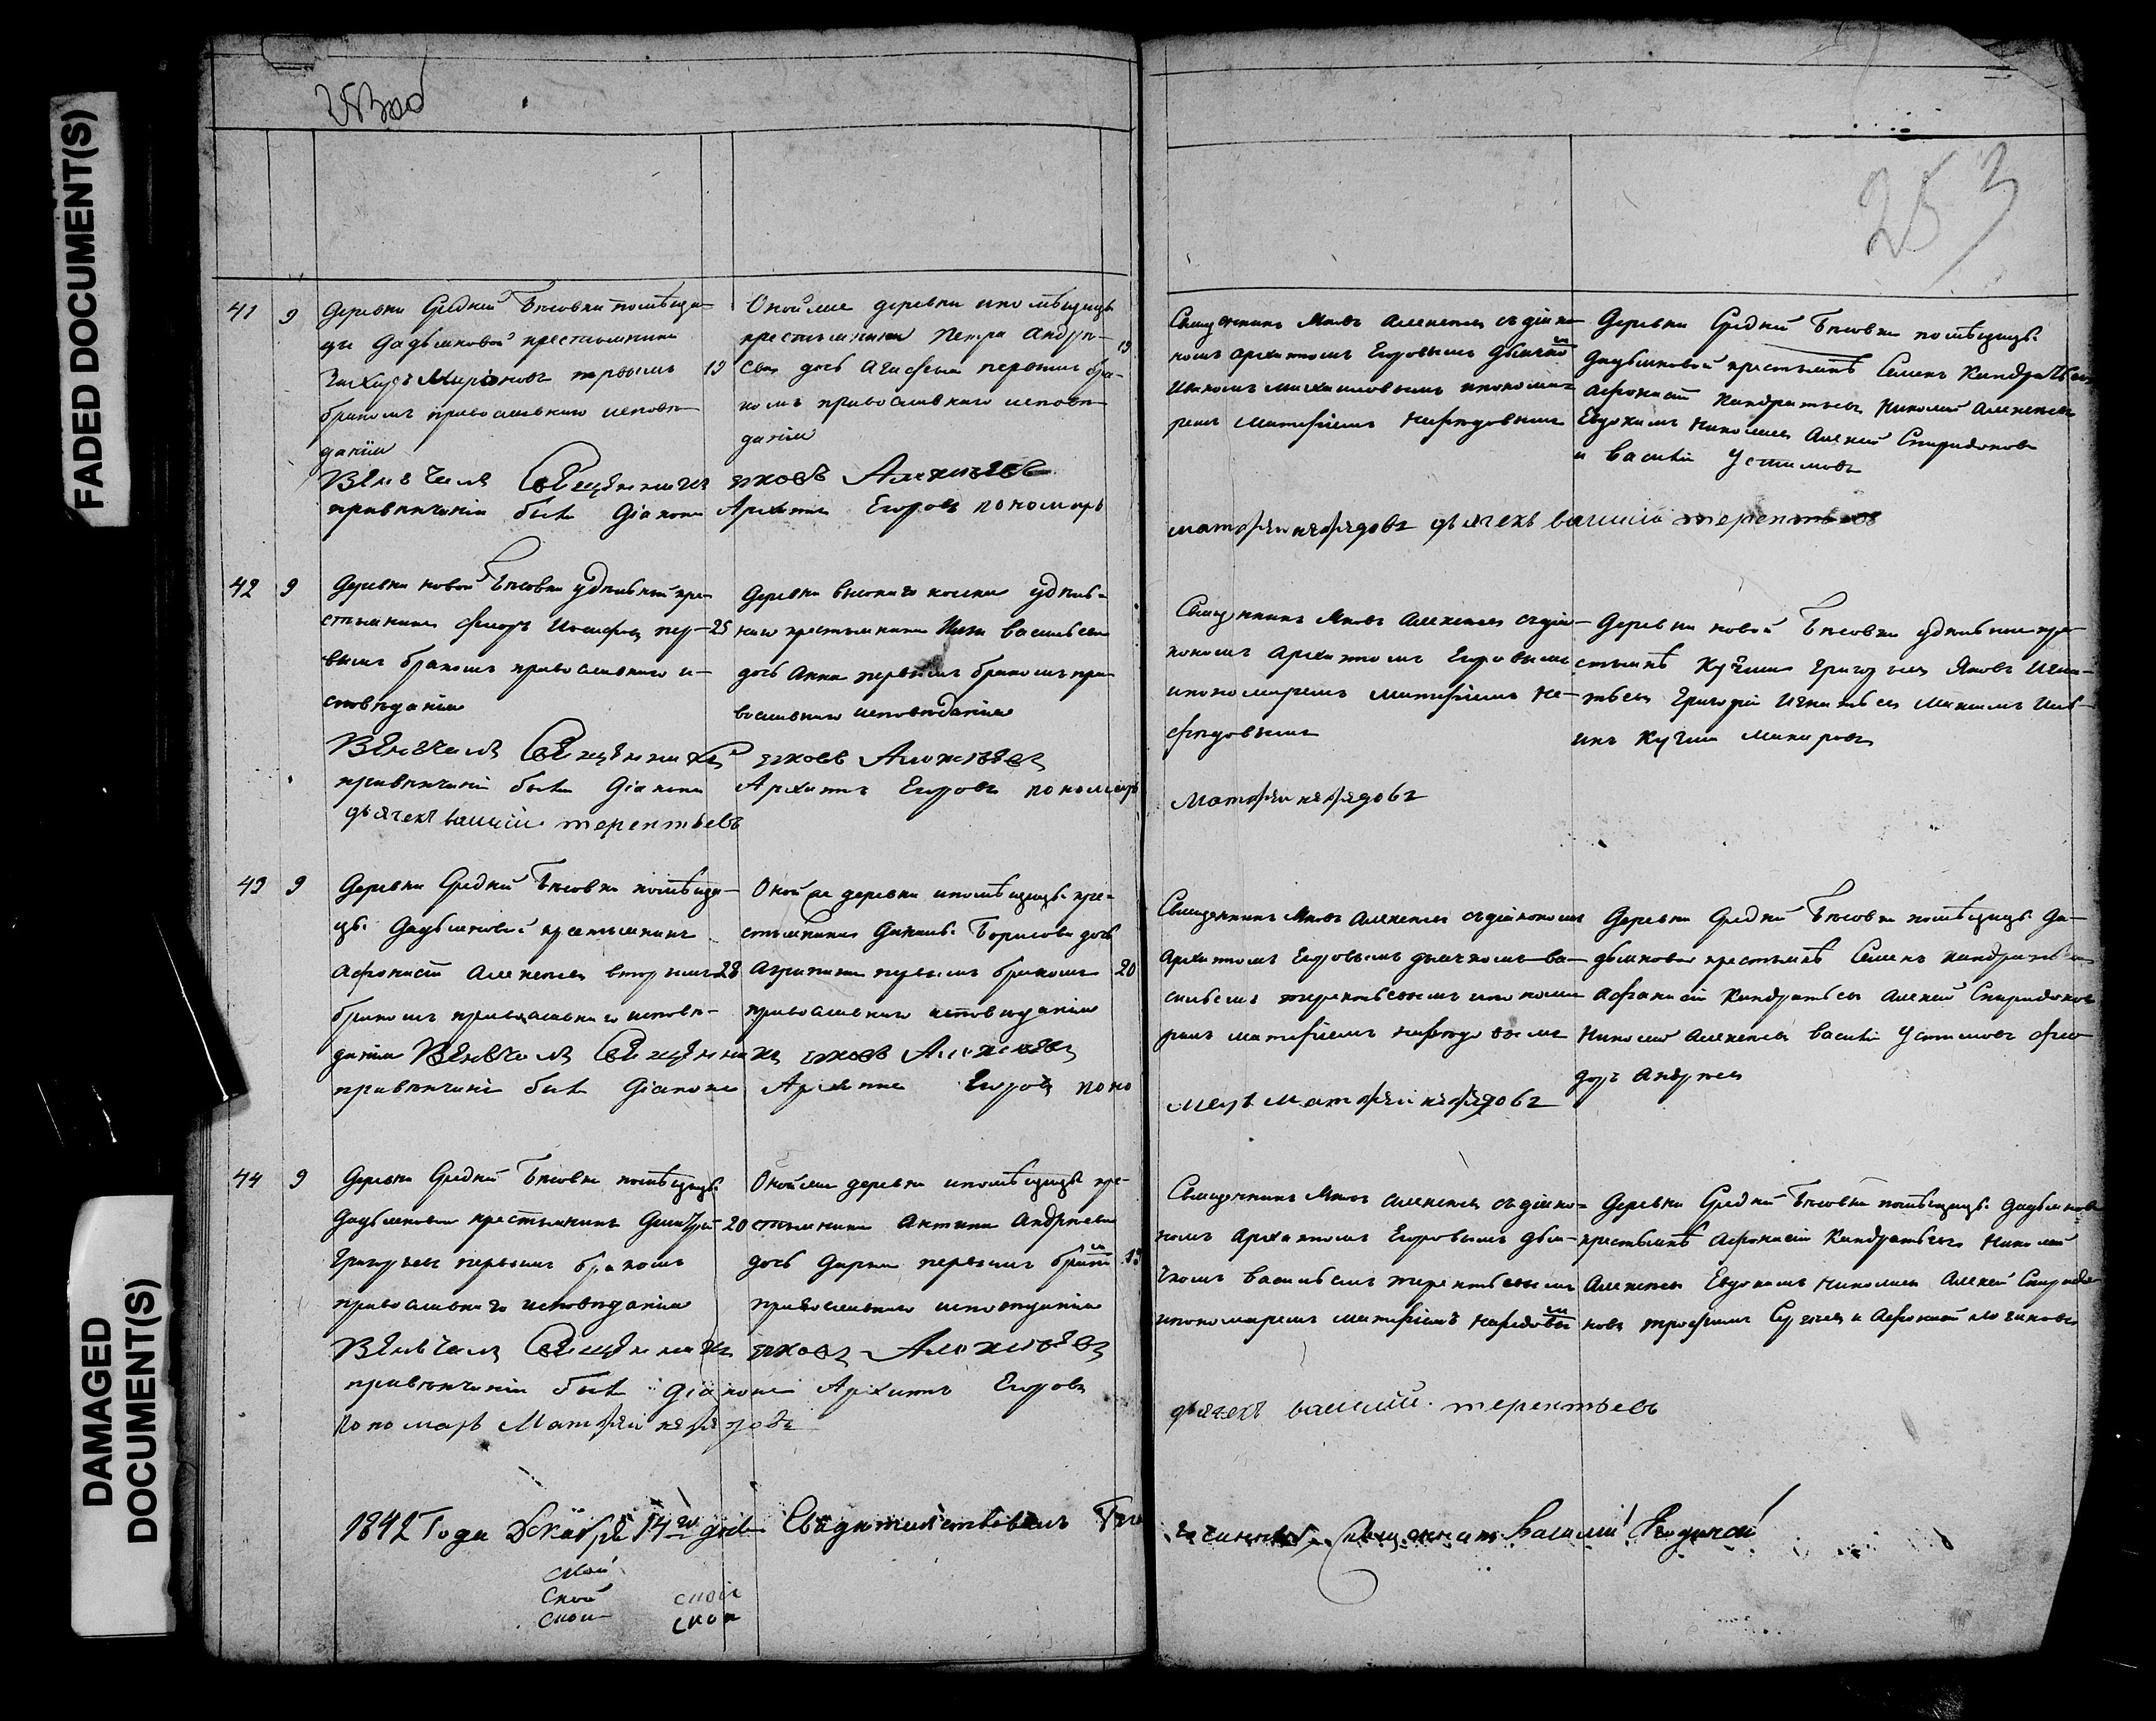 FADED DOCUMENT(S)
DAMAGED
DOCUMENT(S)
253
41 9 Деревни Средней Тѣсовки помѣщи-
цы Дадьяновой крестьянинъ
Мироновъ первымъ 19
бракомъ православнаго исповѣ-
данія
Оной же деревни и помѣщицы
крестьянина Петра Андрѣ-
ева дочь Агафья первымъ бра- 19
комъ православнаго исповѣ-
данія
Священникъ Яковъ Алексѣевъ съ діако-
номъ Архипомъ Егоровымъ
Михайловымъ и понома-
ремъ Матѳіемъ Нефедовымъ
Деревни Средней Тѣсовки помѣщицы
Дадьяновой крестьянѣ Семенъ Кандратьевъ
Афонасій Кандратьевъ Николай Алексѣевъ
Евдокимъ Николаевъ Алексѣй Спиридоновъ
и Василій Устимовъ
Вѣнчалъ Священникъ Яковъ Алексѣевъ
при вѣнчаніи были Діаконъ Архипъ Егоровъ пономарь
матфѣи нефедовъ дьячекъ василіи терентьевъ
42 9 Деревни новой Тѣсовки удѣльный кре-
стьянинъ Федоръ пер- 25
вымъ бракомъ православнаго и-
сповѣданія
Деревни удѣль-
наго крестьянина Васильева
дочь Анна первымъ бракомъ пра-
вославнаго исповѣданія
Священникъ Яковъ Алексѣевъ съ діа-
кономъ Архипомъ Егоровымъ
и пономаремъ Матѳіемъ Не-
федовымъ
Деревни новой Тѣсовки удѣльные кре-
стьянѣ Кузма Григорьевъ Яковъ Игна-
тьевъ Григорій Игнатьевъ Максимъ Ив-
инъ Кузма Макаровъ
Вѣнчалъ Священникъ Яковъ Алексѣевъ
при вѣнчаніи были Діаконъ Архипъ Егоровъ пономарь
матфѣи нефедовъ
дьячекъ василіи терентьевъ
43 9 Деревни Средней Тѣсовки помѣщи-
цы Дадьяновой крестьянинъ
Афонасій Алексѣевъ вторымъ 28
бракомъ православнаго исповѣ-
данія
Оной же деревни и помѣщицы кре-
стьянина Данилы Борисова дочь
Агрипина первымъ бракомъ 20
православнаго исповѣданія
Священникъ Яковъ Алексѣевъ съ діакономъ
Архипомъ Егоровымъ дьячкомъ Ва-
сильемъ Терентьевымъ и понома-
ремъ Матѳіемъ Нефедовымъ
Деревни Средней Тѣсовки помѣщицы Да-
дьяновой крестьянѣ Семенъ Кандратьевъ
Афанасій Кандратьевъ Алексѣй Спиридоновъ
Николай Алексѣевъ Василій Устимовъ Фео-
доръ Андрѣевъ
Вѣнчалъ Священникъ Яковъ Алексѣевъ
при вѣнчаніи были Діаконъ Архипъ Егоровъ поно
марь матфѣи нефедовъ
44 9 Деревни Средней Тѣсовки помѣщицы
Дадьяновой крестьянинъ Дмитрій 20
Григорьевъ первымъ бракомъ
православнаго исповѣданія
Оной же деревни и помѣщицы кре-
стьянина Антипа Андрѣева
дочь Дарья первымъ бракомъ 19
православнаго исповѣданія
Священникъ Яковъ Алексѣевъ съ діако-
номъ Архипомъ Егоровымъ дья-
чкомъ Васильемъ Терентьевымъ
и пономаремъ Матѳіемъ Нефедовымъ
Деревни Средней Тѣсовки помѣщицы Дадьянов
крестьянѣ Афонасій Кандратьевъ Николай
Алексѣевъ Евдокимъ Николаевъ Алексѣй Спиридо
новъ Трофимъ Сергѣевъ и Афонасій Логиновъ
Вѣнчалъ Священникъ Яковъ Алексѣевъ
при вѣнчаніи были Діаконъ Архипъ Егоровъ
пономарь Матфѣи нефедовъ
дьячекъ василіи терентьевъ
1842 Года Декабря 14го дня Свидѣтельствовалъ
Священникъ Василій